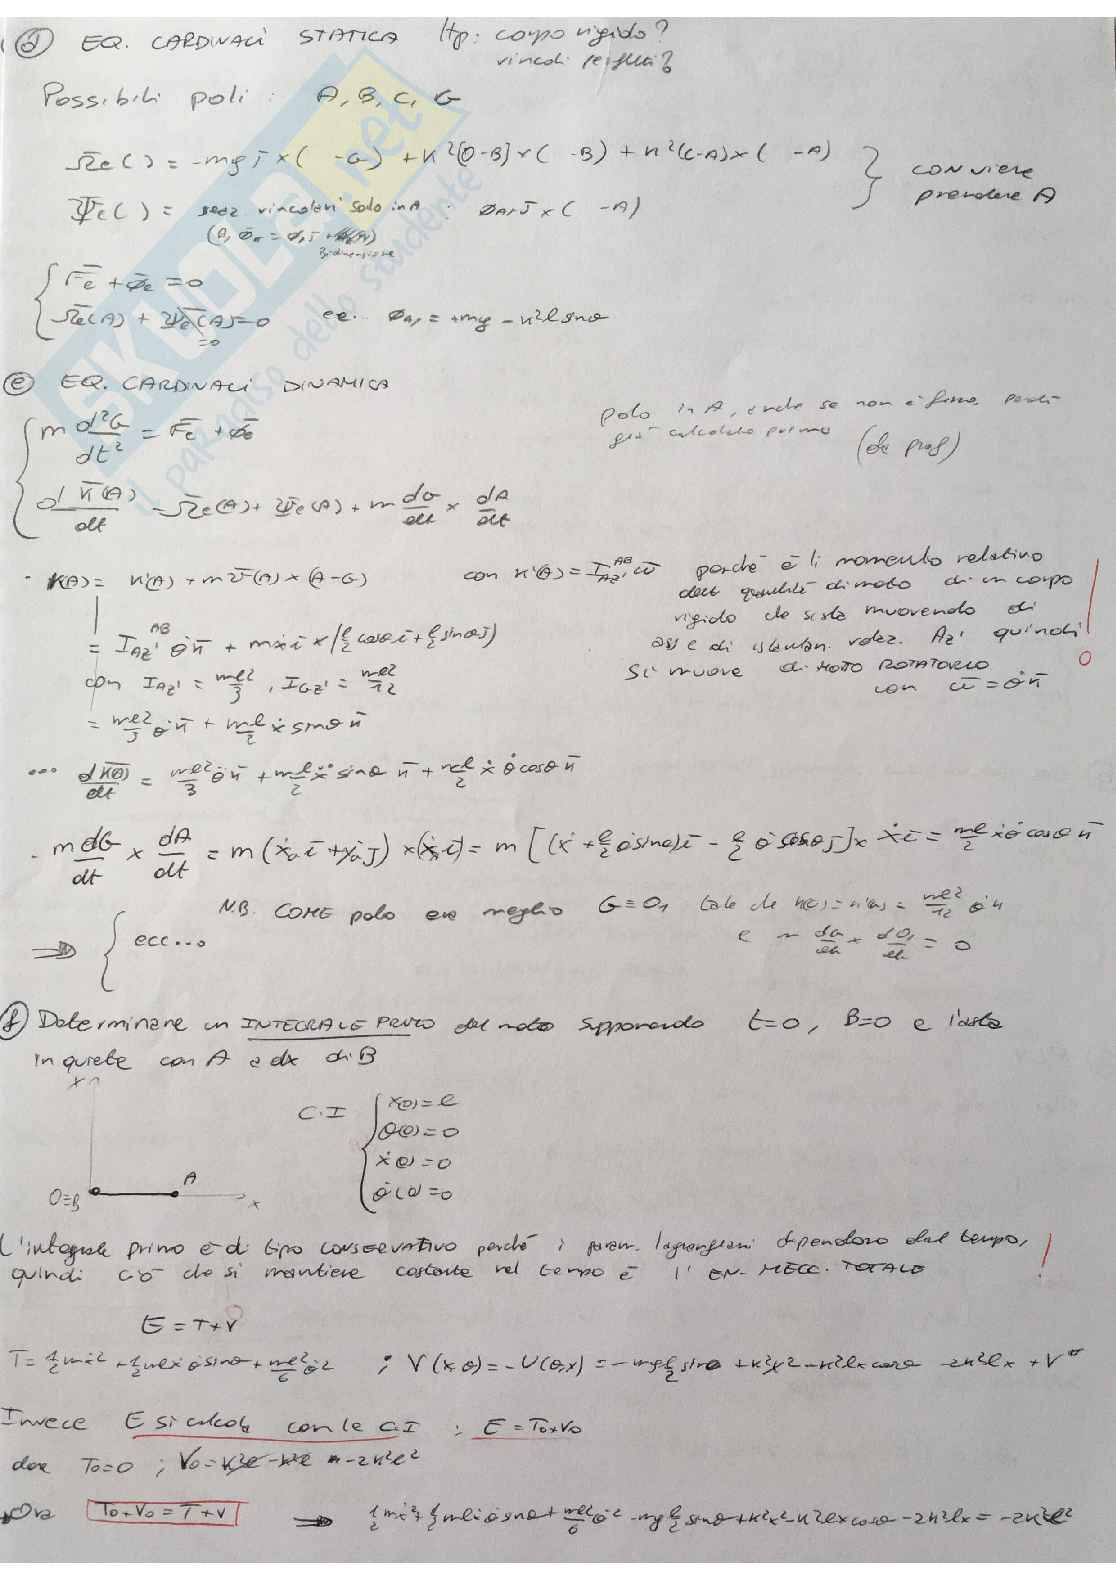 (d) EQ. CARDINALI STATICA Hp: corpo rigido?
vincoli perfetti?
Possibili poli: A, B, C, G
Ω̄e( ) = -mg j̄ × ( -G) + k²(O-B) × ( -B) + k²(C-A) × ( -A)
} CONVIENE prendere A
Ψ̄e( ) = reaz vincolari solo in A : ΦA, j̄ × ( -A)
Bidimensione
{ F̄e + Φ̄e = 0
Ω̄e(A) + Ψ̄e(A) = 0
=0
ΦA, = +mg - k²l sinθ
(e) EQ. CARDINALI DINAMICA
{ m d²G/dt² = F̄e + Φ̄e
polo in A, anche se non è fisso, perché
già calcolato prima (da prof)
dK̄(A)/dt = Ω̄e(A) + Ψ̄e(A) + m dG/dt × dA/dt
· K(A) = K'(A) + m v̄(A) × (A-G)
con K'(A) = I^AB_Az' ω̄ perché è il momento relativo
quantità di moto di un corpo
rigido che si sta muovendo di
asse di istantan. veloz. Az' quindi
si muove di MOTO ROTATORIO
con ω̄ = θ̇ n̄
= I^AB_Az' θ̇ n̄ + mẋ ī × (l/2 cosθ ī + l/2 sinθ j̄)
con I_Az' = ml²/3 , I_Gz' = ml²/12
= ml²/3 θ̇ n̄ + ml/2 ẋ sinθ n̄
... dK̄(A)/dt = ml²/3 θ̈ n̄ + ml/2 ẍ sinθ n̄ + ml/2 ẋ θ̇ cosθ n̄
- m dG/dt × dA/dt = m (ẋG ī + ẏG j̄) × (ẋA ī) = m [(ẋ + l/2 θ̇ sinθ) ī - l/2 θ̇ cosθ j̄] × ẋ ī = ml/2 ẋ θ̇ cosθ n̄
N.B. COME polo era meglio G ≡ O₁ tale che K(G) = K'(G) = ml²/12 θ̇ n̄
e m dG/dt × dO₁/dt = 0
⇒ { ecc...
(f) Determinare un INTEGRALE PRIMO del moto supponendo t=0, B=0 e l'asta
in quiete con A a dx di B
C.I { x(0) = l
θ(0) = 0
ẋ(0) = 0
θ̇(0) = 0
O≡B A x
L'integrale primo è di tipo CONSERVATIVO perché i param. lagrangiani dipendono dal tempo,
quindi ciò che si mantiene costante nel tempo è l' EN. MECC. TOTALE
E = T+V
T = ½mẋ² + ½mlẋ θ̇ sinθ + ml²/6 θ̇² ; V(x,θ) = -U(θ,x) = -mg l/2 sinθ + k²x² - k²lx cosθ - 2k²lx + V°
Invece E si calcola con le C.I : E = T₀+V₀
dove T₀=0 ; V₀ = k²l² - k²l² - 2k²l²
Ora T₀+V₀ = T+V ⇒ ½mẋ² + ½mlẋ θ̇ sinθ + ml²/6 θ̇² - mg l/2 sinθ + k²x² - k²lx cosθ - 2k²lx = -2k²l²
SKUOLA.net
il paradiso dello studente